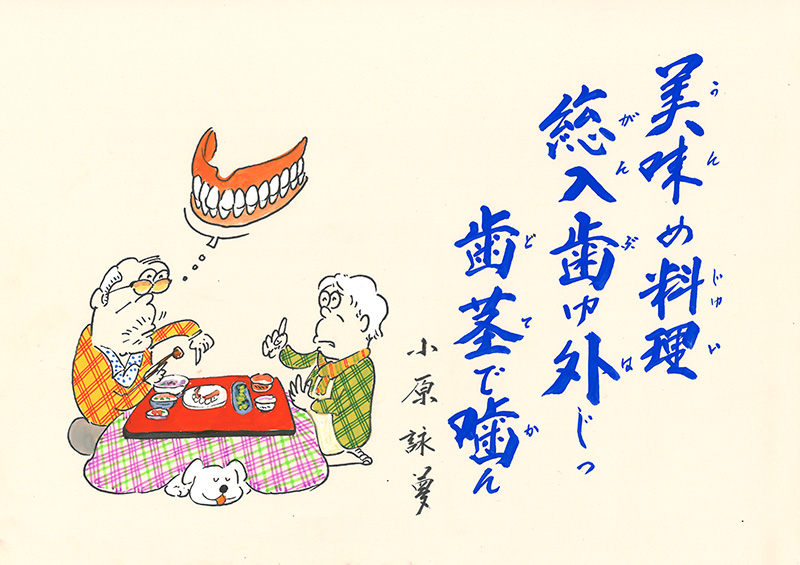 うんじゅい
美味め料理
がんぶは
総入歯ゆ外じっ
どてか
歯茎で噛ん
小原詠夢